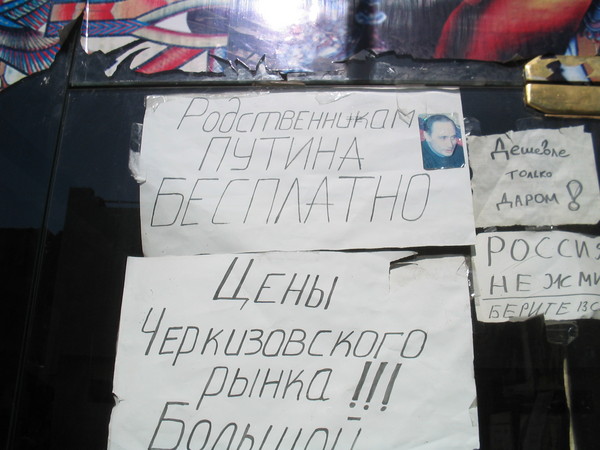 Родственникам
ПУТИНА
БЕСПЛАТНО
Цены
Черкизовского
рынка !!!
Большой
Дешевле
только
даром!
РОССИЯ
НЕ ЖМИ
БЕРИТЕ